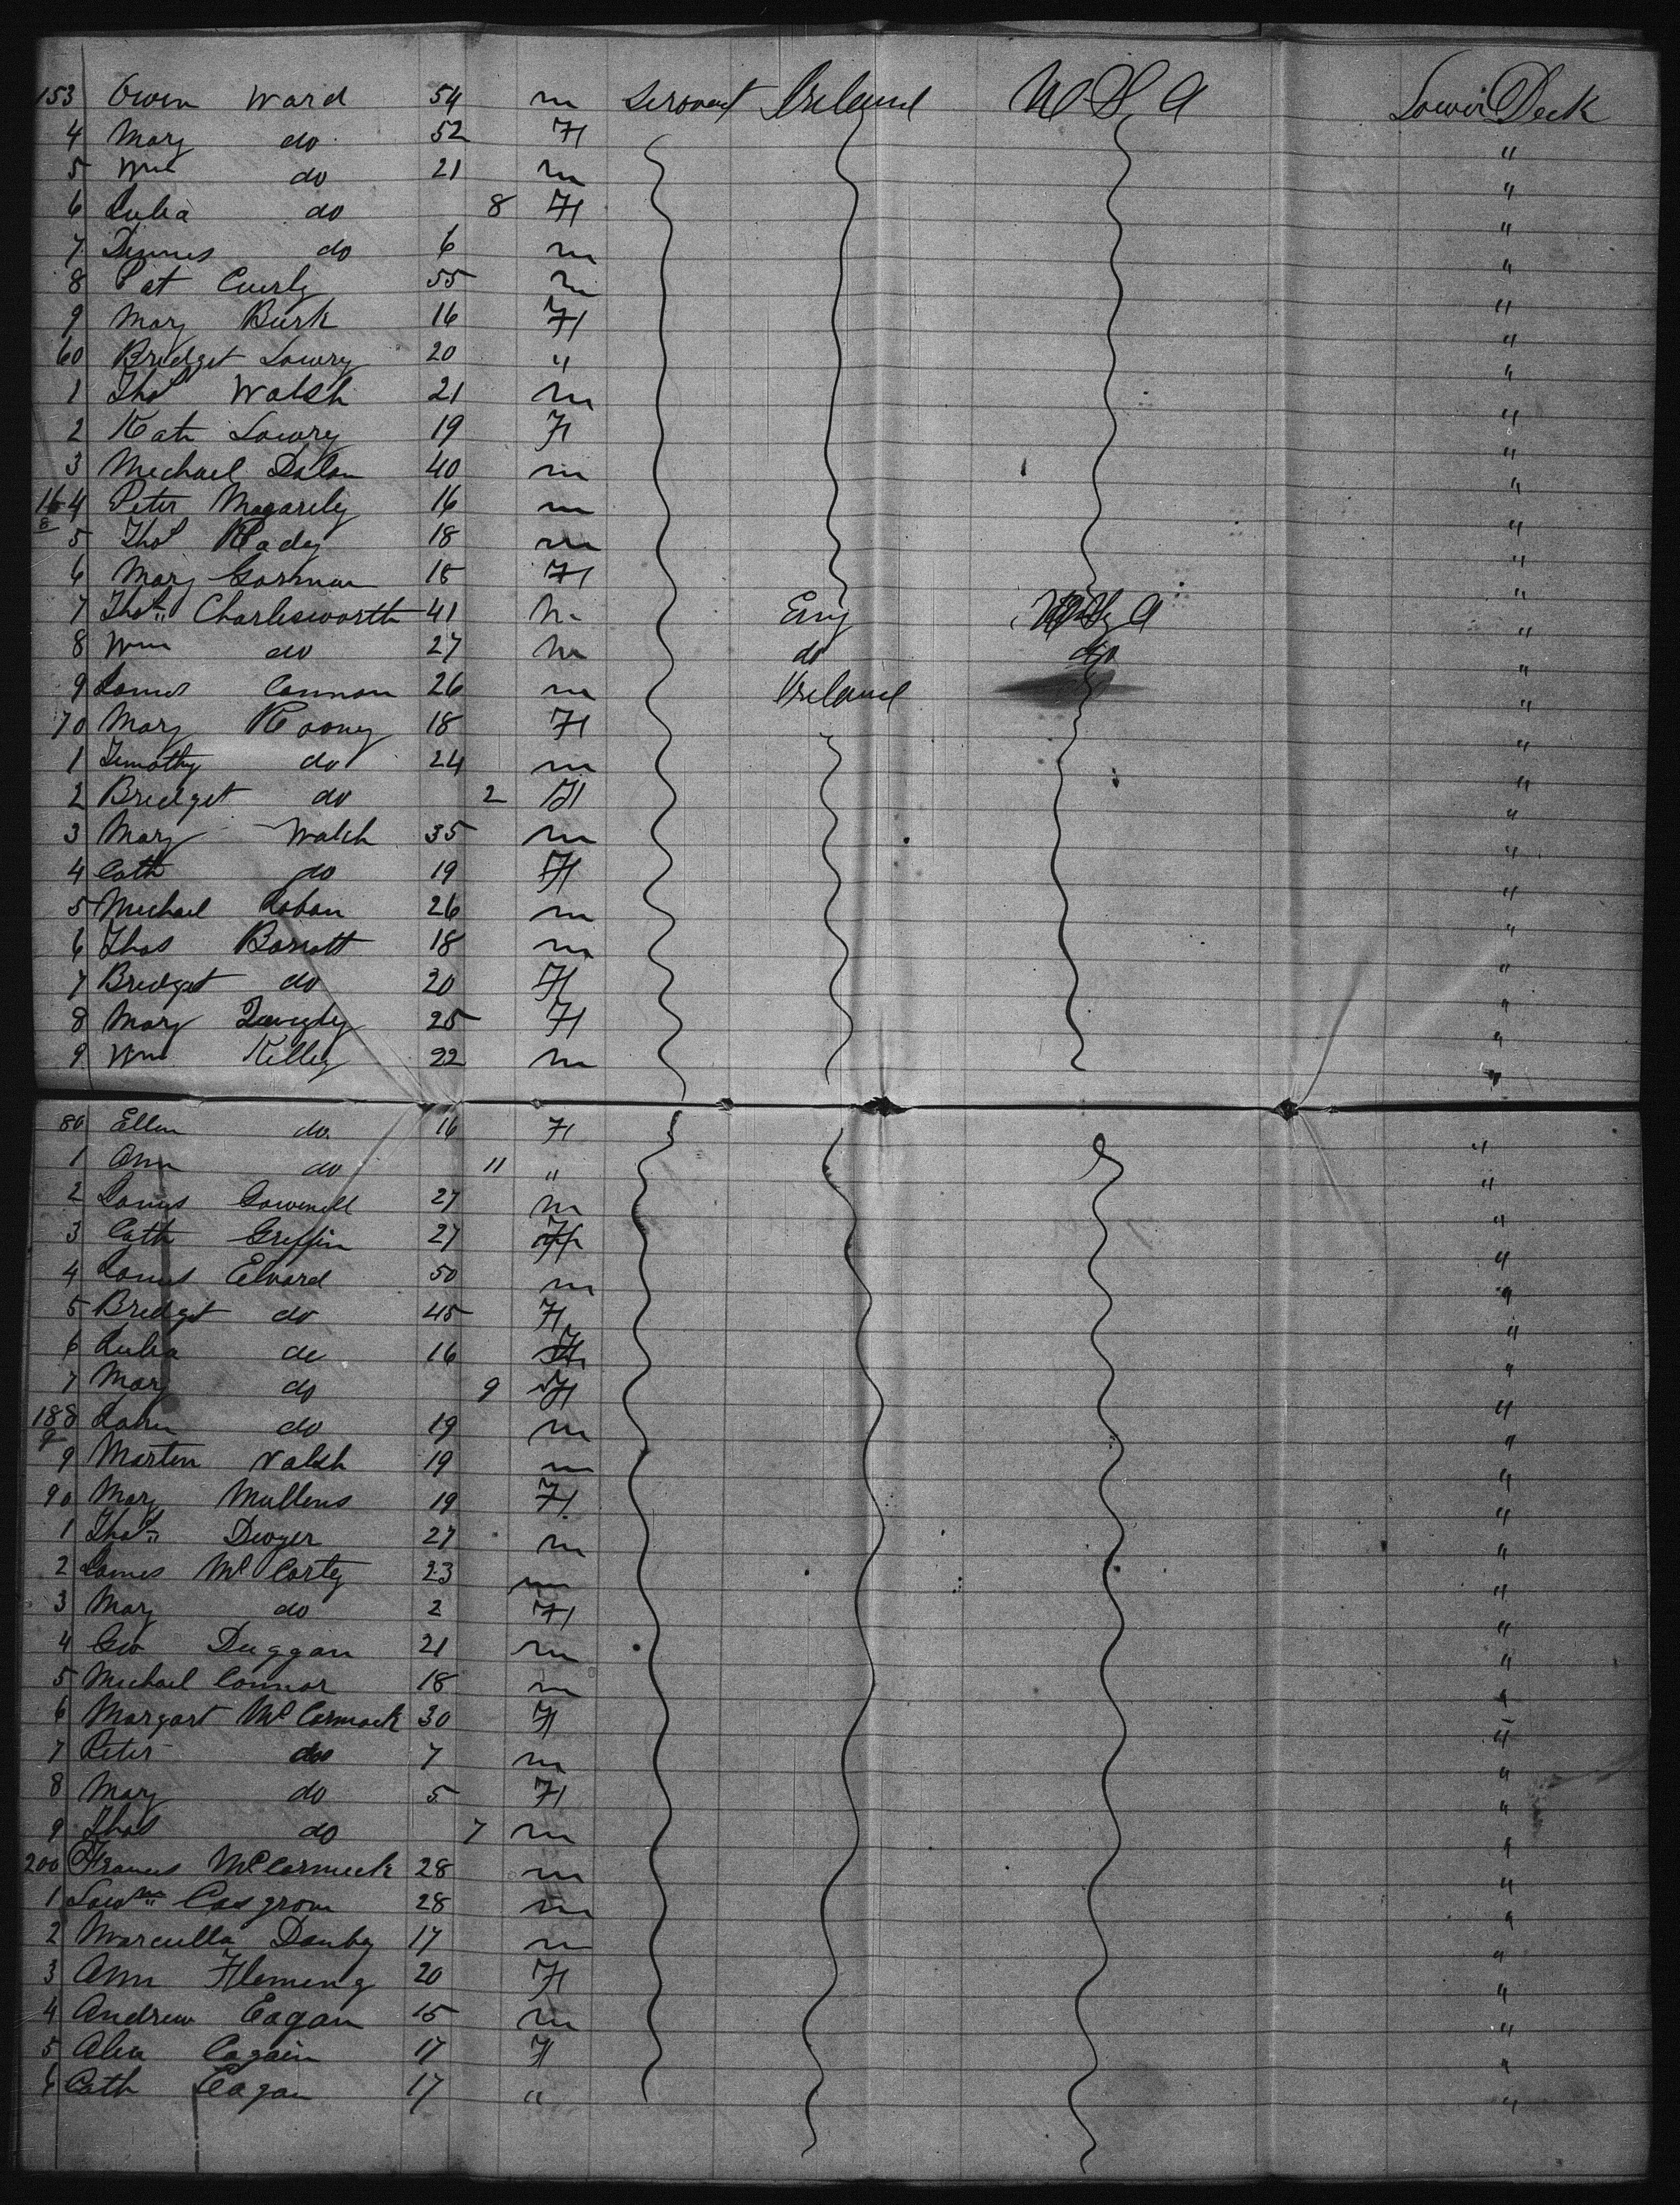 153 Owen Ward 54 m Servant Ireland U S A Lower Deck
4 Mary do 52 F "
5 Wm do 21 m "
6 Julia do 8 F "
7 Dennis do 6 m "
8 Pat Cuerly 55 m "
9 Mary Burk 16 F "
60 Bridget Lowry 20 " "
1 Thos Walsh 21 m "
2 Kate Lowry 19 F "
3 Michael Dolan 40 m "
164 Peter 16 m "
8
5 Thos 18 m "
6 Mary Gorman 18 F "
7 Thos Charlesworth 41 m Eng U S A "
8 Wm do 27 m do do "
9 James Cannon 26 m Ireland "
70 Mary Rooney 18 F "
1 Timothy do 24 m "
2 Bridget do 2 F "
3 Mary Walsh 35 m "
4 Cath do 19 F "
5 Michael 26 m "
6 Thos Barrett 18 m "
7 Bridget do 20 F "
8 Mary Quigley 25 F "
9 Wm Kelley 22 m "
80 Ellen do 16 F "
1 Ann do 11 " "
2 James 27 m "
3 Cath Griffin 27 F "
4 James Elvard 50 m "
5 Bridget do 45 F "
6 Julia do 16 F "
7 Mary do 9 F "
188 John do 19 m "
9
9 Martin Walsh 19 m "
90 Mary Mullens 19 F "
1 Thos Dwyer 27 m "
2 James McCarty 23 m "
3 Mary do 2 F "
4 Geo Duggan 21 m "
5 Michael Connor 18 m "
6 Margart McCormack 30 F "
7 Peter do 7 m "
8 Mary do 5 F "
9 Thos do 7 m "
200 Francis McCormick 28 m "
1 Lawce Casgrove 28 m "
2 Marcella Danby 17 m "
3 Ann Fleming 20 F "
4 Andrew Eagan 15 m "
5 17 F "
6 Cath Eagan 17 " "